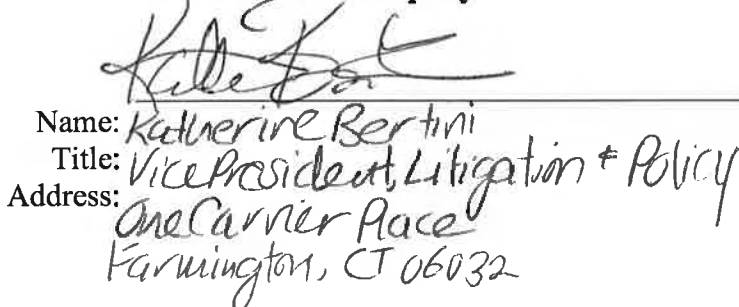 Name: Katherine Bertini
Title: Vice President, Litigation & Policy
Address:
One Carrier Place
Farmington, CT 06032